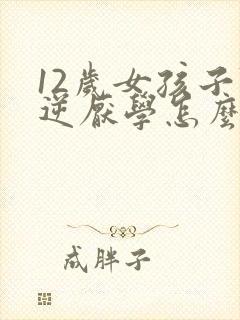 12歲女孩子
逆厭學怎麼
成胖子